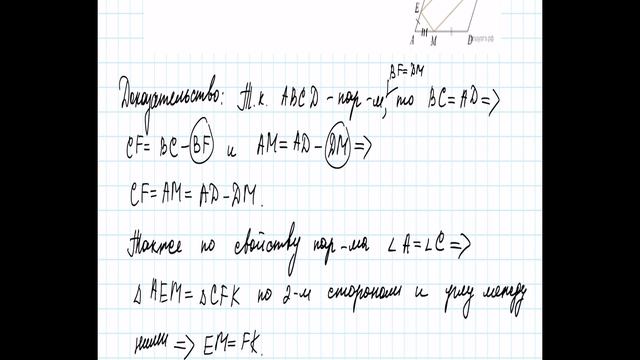 E
A M D
BF=DM
Доказательство: Т.к. ABCD - пар-м, то BC=AD=>
CF= BC-BF и AM=AD-DM=>
CF=AM=AD-DM.
Также по свойству пар-ма ∠A=∠C=>
Δ AEM=ΔCFK по 2-м сторонам и углу между
ними => EM=FK.